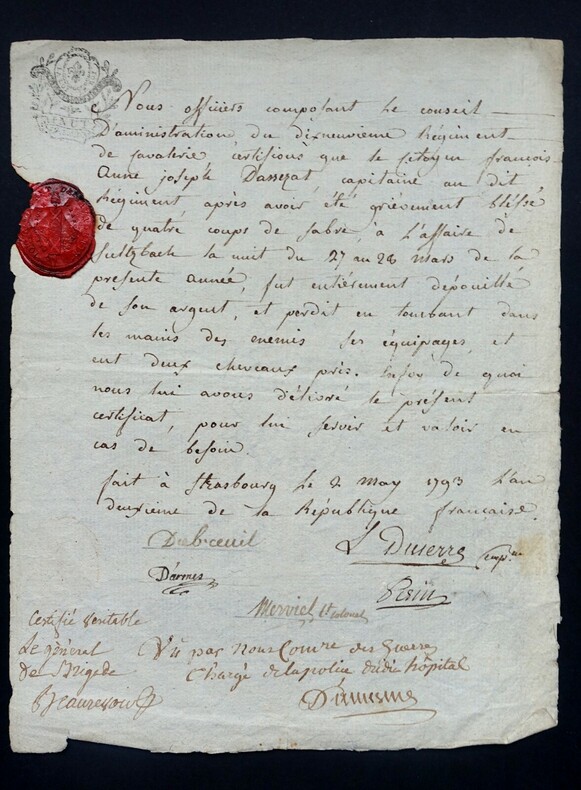 Nous officiers composant le conseil
D'administration du dixneuvieme Régiment
de cavalerie, certifions que le citoyen françois
Anne joseph Dassezat, capitaine au dit
Régiment, après avoir été grièvement bléssé
de quatre coups de sabre, à l'affaire de
Sultzbach la nuit du 27 au 28 mars de la
présente année, fut entièrement dépouillé
de son argent, et perdit en tombant dans
les mains des enemis ses équipages, et
eut deux chevaux pris. En foi de quoi
nous lui avons délivré le présent
certificat, pour lui servir et valoir en
cas de besoin.
fait à Strasbourg le 2 may 1793 l'an
deuxieme de la République française.
Dubreuil
L Duserre
D'armes
Merviel Lt colonel
Certifié véritable
Le général
De Brigade
Vu par Nous Comre des Guerres
Chargé de la police dudit hôpital